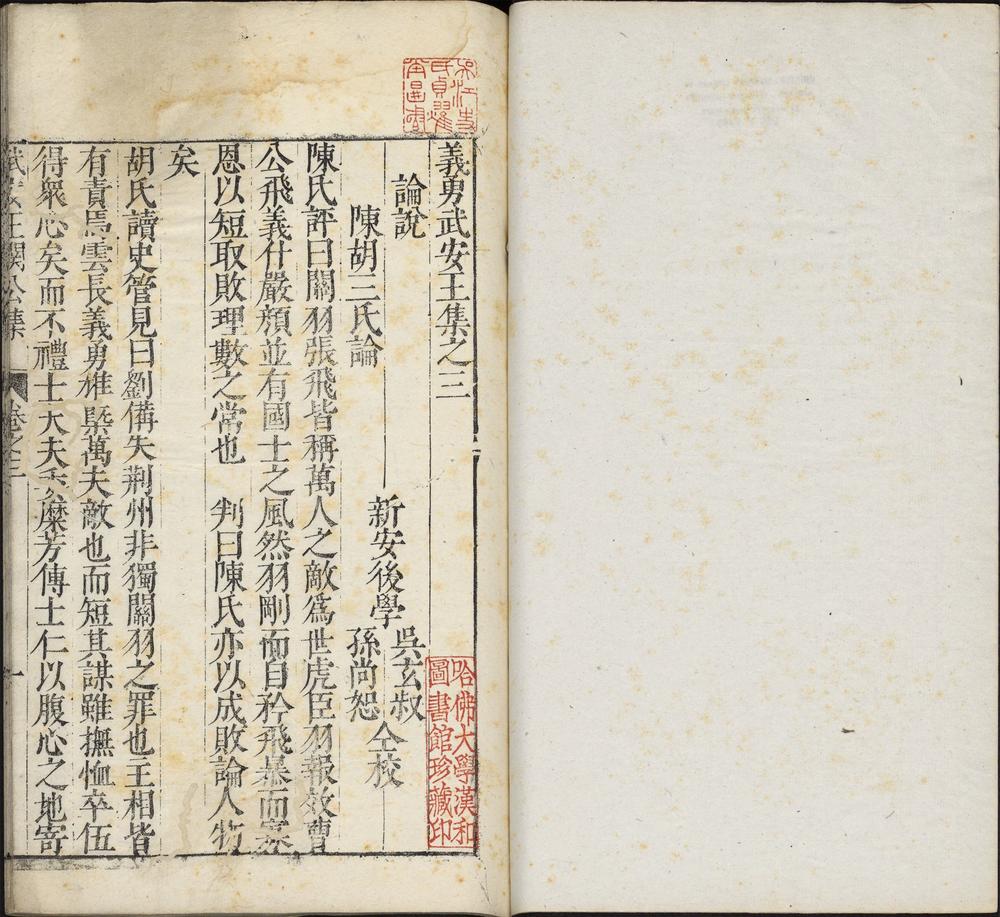 義勇武安王集之三
論說
新安後學
吳玄叔
孫尚恕
仝校
陳胡三氏論
陳氏評曰關羽張飛皆稱萬人之敵爲世虎臣羽報效曹
公飛義什嚴顏並有國士之風然羽剛而自矜飛暴而寡
恩以短取敗理數之常也　判曰陳氏亦以成敗論人物
矣
胡氏讀史管見曰劉備失荊州非獨關羽之罪也主相皆
有責焉雲長義勇雄槩萬夫敵也而短其謀雖撫恤卒伍
得衆心矣而不禮士大夫糜芳傅士仁以腹心之地寄
武安王關公集
卷之三
一
哈佛大學漢和
圖書館珍藏印